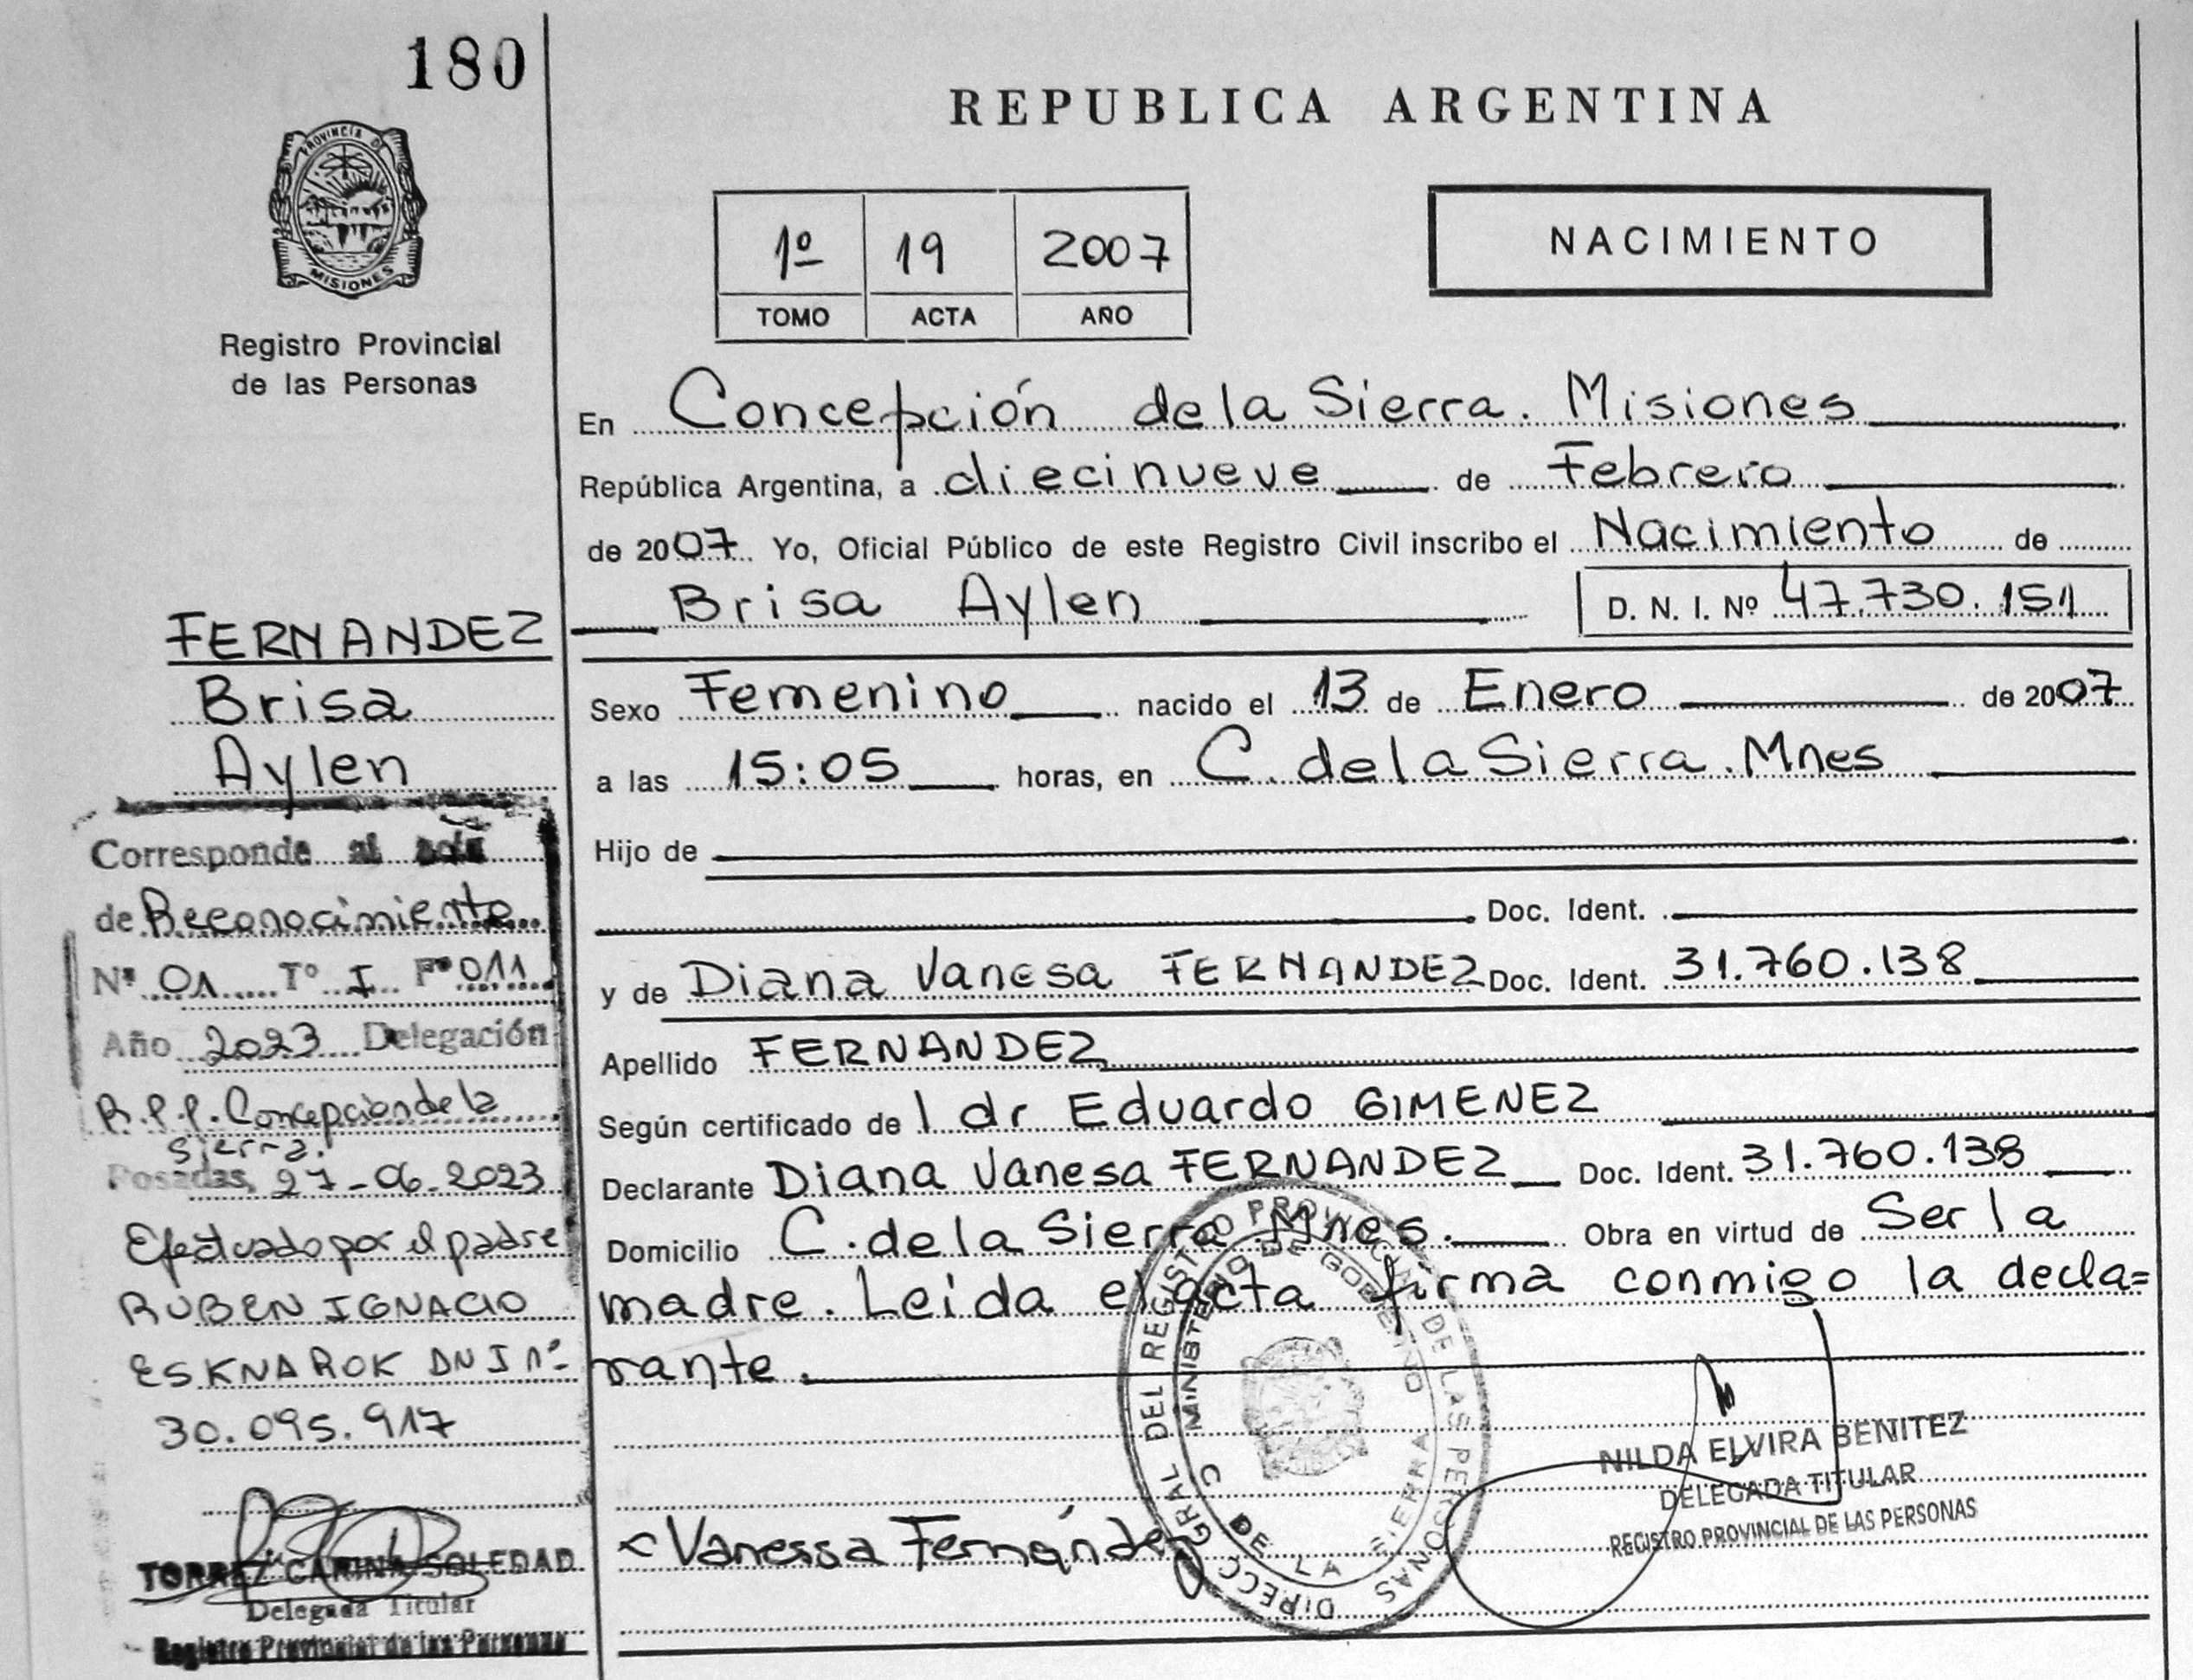 180
PROVINCIA DE
MISIONES
Registro Provincial
de las Personas
FERNANDEZ
Brisa
Aylen
Corresponde al acta
de Reconocimiento
Nº 01 Tº I Fº 011
Año 2023 Delegación
R.P.P. Concepcion de la
Sierra.
Posadas, 27-06-2023
Efectuado por el padre
RUBEN IGNACIO
ESKNAROK DNI nº
30.095.917
TORREZ CARINA SOLEDAD
Delegada Titular
Registro Provincial de las Personas
REPUBLICA ARGENTINA
1º 19 2007
TOMO ACTA AÑO
NACIMIENTO
En Concepción de la Sierra. Misiones
República Argentina, a diecinueve de Febrero
de 2007 Yo, Oficial Público de este Registro Civil inscribo el Nacimiento de
Brisa Aylen D. N. I. Nº 47.730.151
Sexo Femenino nacido el 13 de Enero de 2007
a las 15:05 horas, en C. de la Sierra. Mnes
Hijo de
Doc. Ident.
y de Diana Vanesa FERNANDEZ Doc. Ident. 31.760.138
Apellido FERNANDEZ
Según certificado de l dr Eduardo GIMENEZ
Declarante Diana Vanesa FERNANDEZ Doc. Ident. 31.760.138
Domicilio C. de la Sierra Mnes. Obra en virtud de Ser la
madre. Leida el acta firma conmigo la decla=
rante.
Vanessa Fernández
DIRECC GRAL DEL REGISTRO PROVINCIAL DE LAS PERSONAS
MINISTERIO DE GOBIERNO
C DE LA SIERRA
NILDA ELVIRA BENITEZ
DELEGADA TITULAR
REGISTRO PROVINCIAL DE LAS PERSONAS